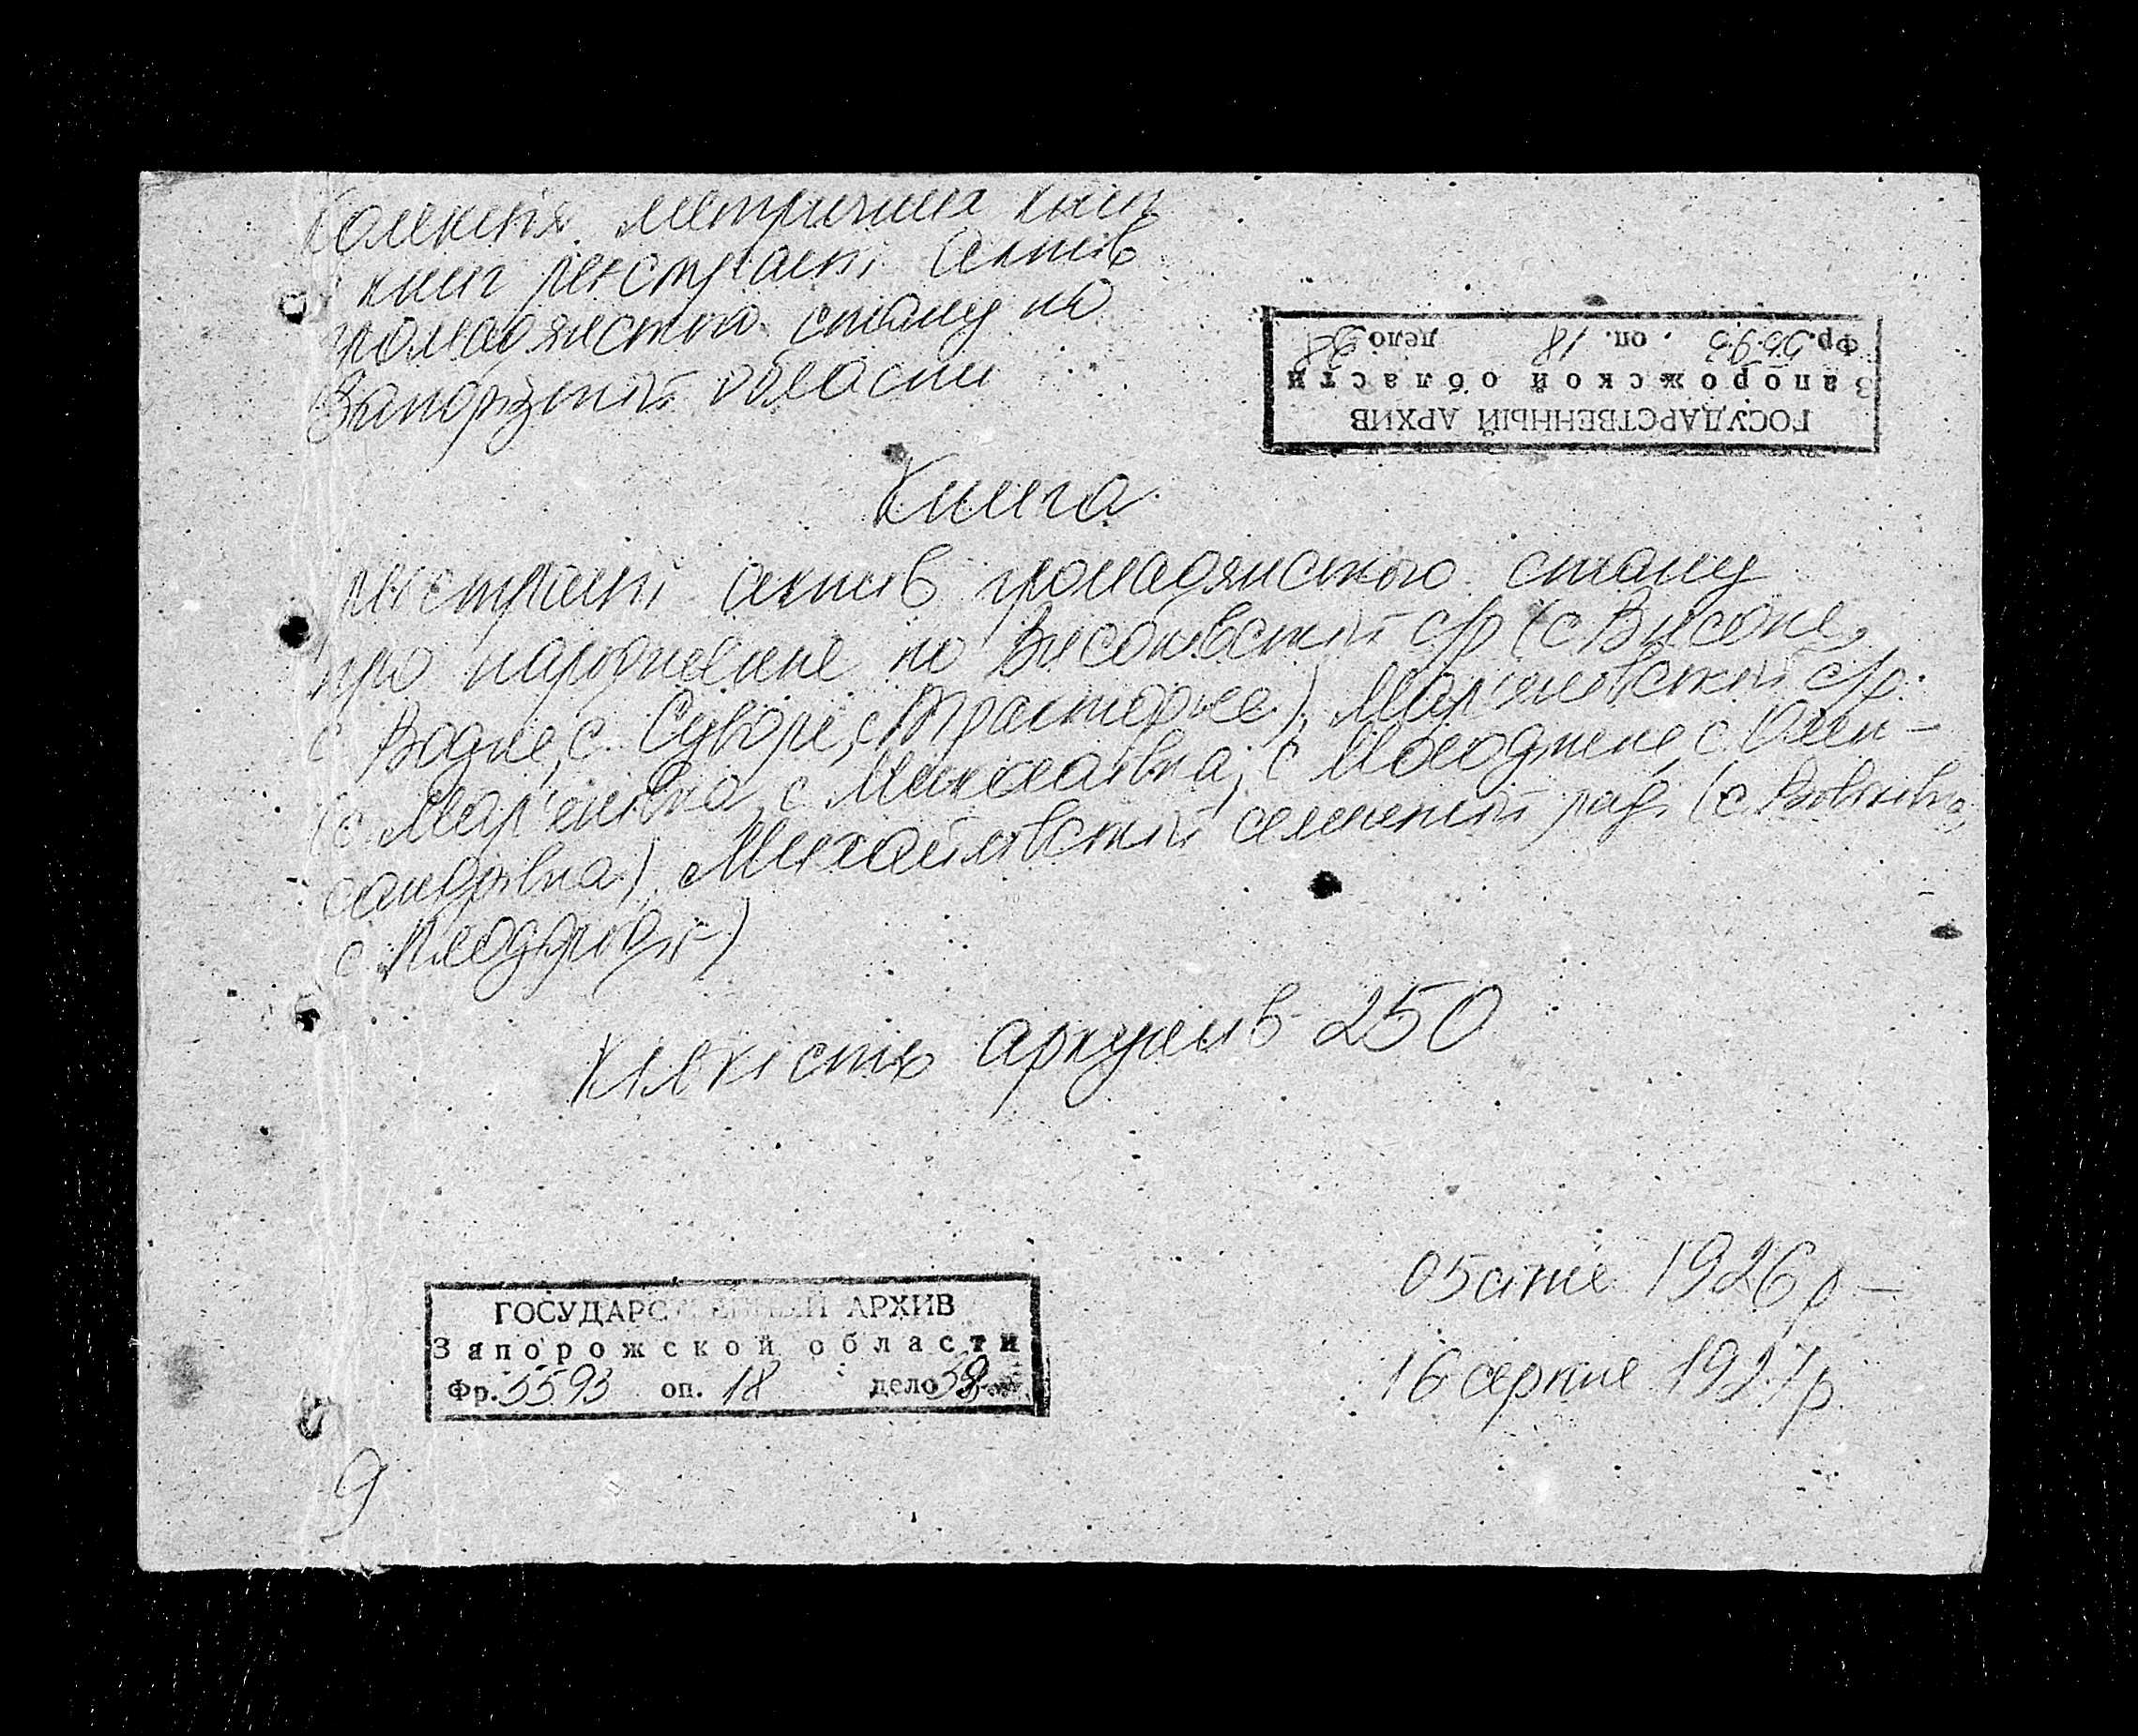 Колекція метричних книг
і книг реєстрації актів
громадянського стану по
Запорізькій області
ГОСУДАРСТВЕННЫЙ АРХИВ
Запорожской области
Фр. 5593 оп. 18 дело 38
Книга
реєстрації актів громадянського стану
про народження по Високівській с/р (с Високе,
с Водне, с. Суворе, с Тракторне), Мар'янівській с/р.
(с. Мар'янівка, с. Михайлівка, с Молодіжне, с. Олек-
сандрівка), Михайлівській селищній раді (с. Вовківка,
с. Плодородне)
Кількість аркушів 250
05 січня 1926 р –
16 серпня 1927 р.
ГОСУДАРСТВЕННЫЙ АРХИВ
Запорожской области
Фр. 5593 оп. 18 дело 38
9